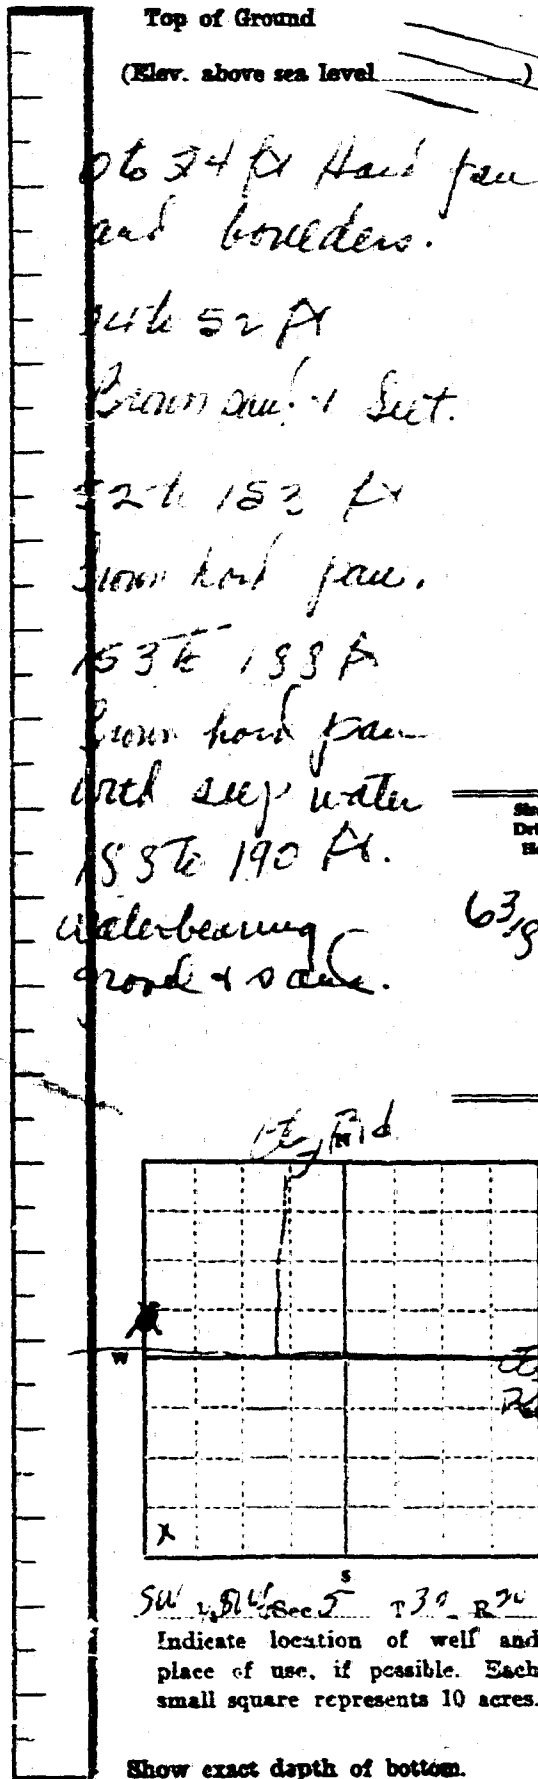 Top of Ground
(Elev. above sea level )
0 to 34 ft Hard pan
and boulders.
34 to 52 ft
Brown sand & Silt.
52 to 153 ft
Brown hard pan.
153 to 188 ft
Brown hard pan
with seep water
188 to 190 ft.
waterbearing
gravel & sand.
6 3/8
Rd
N
W
X
S
SW Sec 5 T 32 R 20
Indicate location of well and
place of use, if possible. Each
small square represents 10 acres.
Show exact depth of bottom.